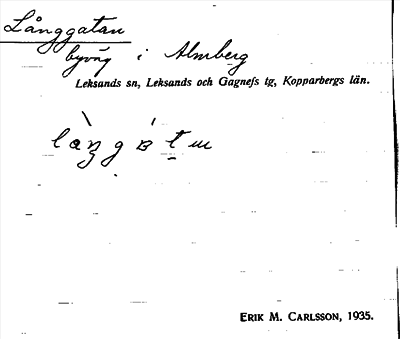 Långgatan
byväg i Almberg
Leksands sn, Leksands och Gagnefs tg, Kopparbergs län.
ERIK M. CARLSSON, 1935.